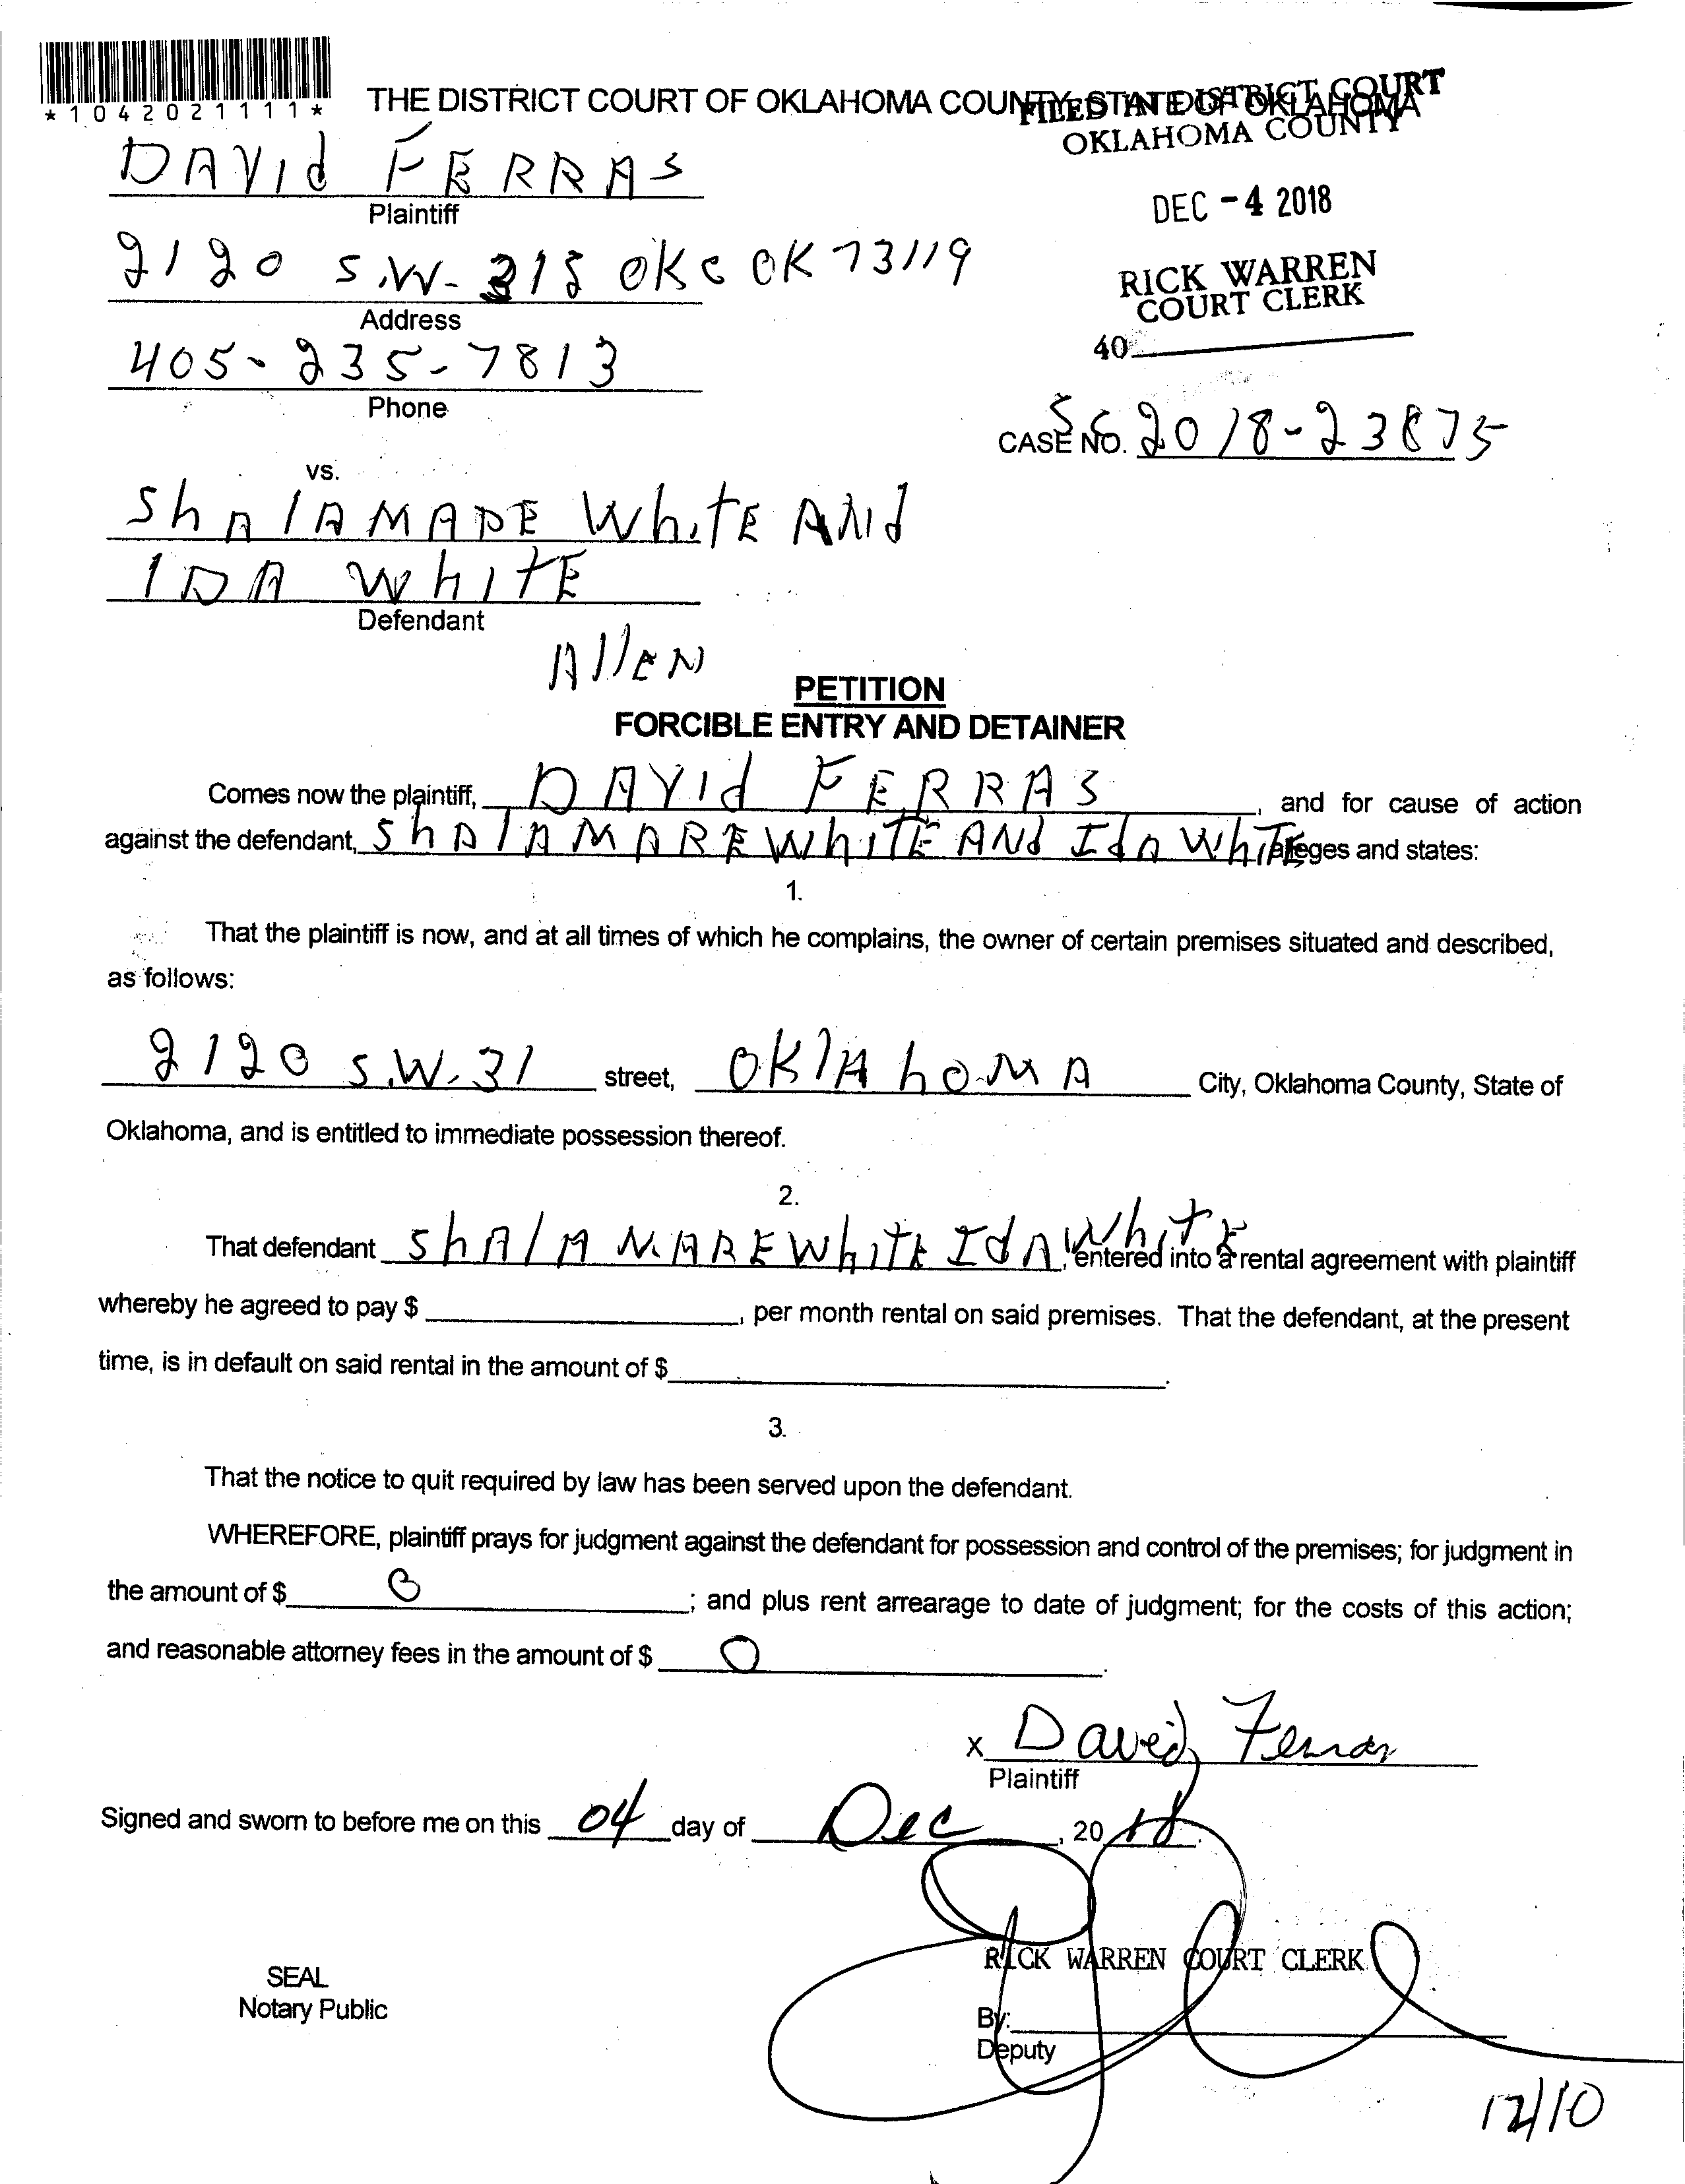 *1042021111*
THE DISTRICT COURT OF OKLAHOMA COUNTY, STATE OF OKLAHOMA
FILED IN DISTRICT COURT
OKLAHOMA COUNTY
DAVid FERRAS
Plaintiff
DEC -4 2018
2120 S.W. 31S OKC OK 73119
Address
RICK WARREN
COURT CLERK
40
405-235-7813
Phone
CASE NO. SC 2018-23875
vs.
ShAlAMARE WhiTE ANd
IDA WhITE
Defendant
AllEN
PETITION
FORCIBLE ENTRY AND DETAINER
Comes now the plaintiff, DAVId FERRAS, and for cause of action
against the defendant, ShAlAMARE WhITE ANd IdA WhITE alleges and states:
1.
That the plaintiff is now, and at all times of which he complains, the owner of certain premises situated and described,
as follows:
2120 S.W. 31 street, OKlAhOMA City, Oklahoma County, State of
Oklahoma, and is entitled to immediate possession thereof.
2.
That defendant ShAlAMARE WhITE IdA WhITE, entered into a rental agreement with plaintiff
whereby he agreed to pay $ , per month rental on said premises. That the defendant, at the present
time, is in default on said rental in the amount of $ .
3.
That the notice to quit required by law has been served upon the defendant.
WHEREFORE, plaintiff prays for judgment against the defendant for possession and control of the premises; for judgment in
the amount of $ 0 ; and plus rent arrearage to date of judgment; for the costs of this action;
and reasonable attorney fees in the amount of $ 0 .
x David Ferras
Plaintiff
Signed and sworn to before me on this 04 day of Dec, 20 18.
RICK WARREN COURT CLERK
SEAL
Notary Public
By:
Deputy
12/10